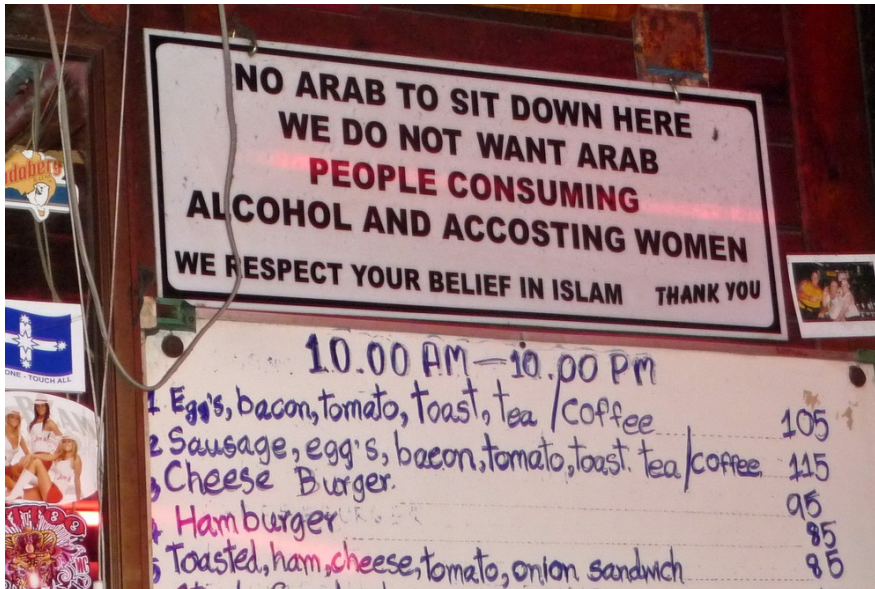 NO ARAB TO SIT DOWN HERE
WE DO NOT WANT ARAB
PEOPLE CONSUMING
ALCOHOL AND ACCOSTING WOMEN
WE RESPECT YOUR BELIEF IN ISLAM THANK YOU
ONE - TOUCH ALL
10.00 AM — 10.00 PM
1 Egg's, bacon, tomato, toast, tea / coffee 105
2 Sausage, egg's, bacon, tomato, toast. tea/coffee 115
Cheese Burger. 95
Hamburger 85
Toasted, ham, cheese, tomato, onion sandwich 85